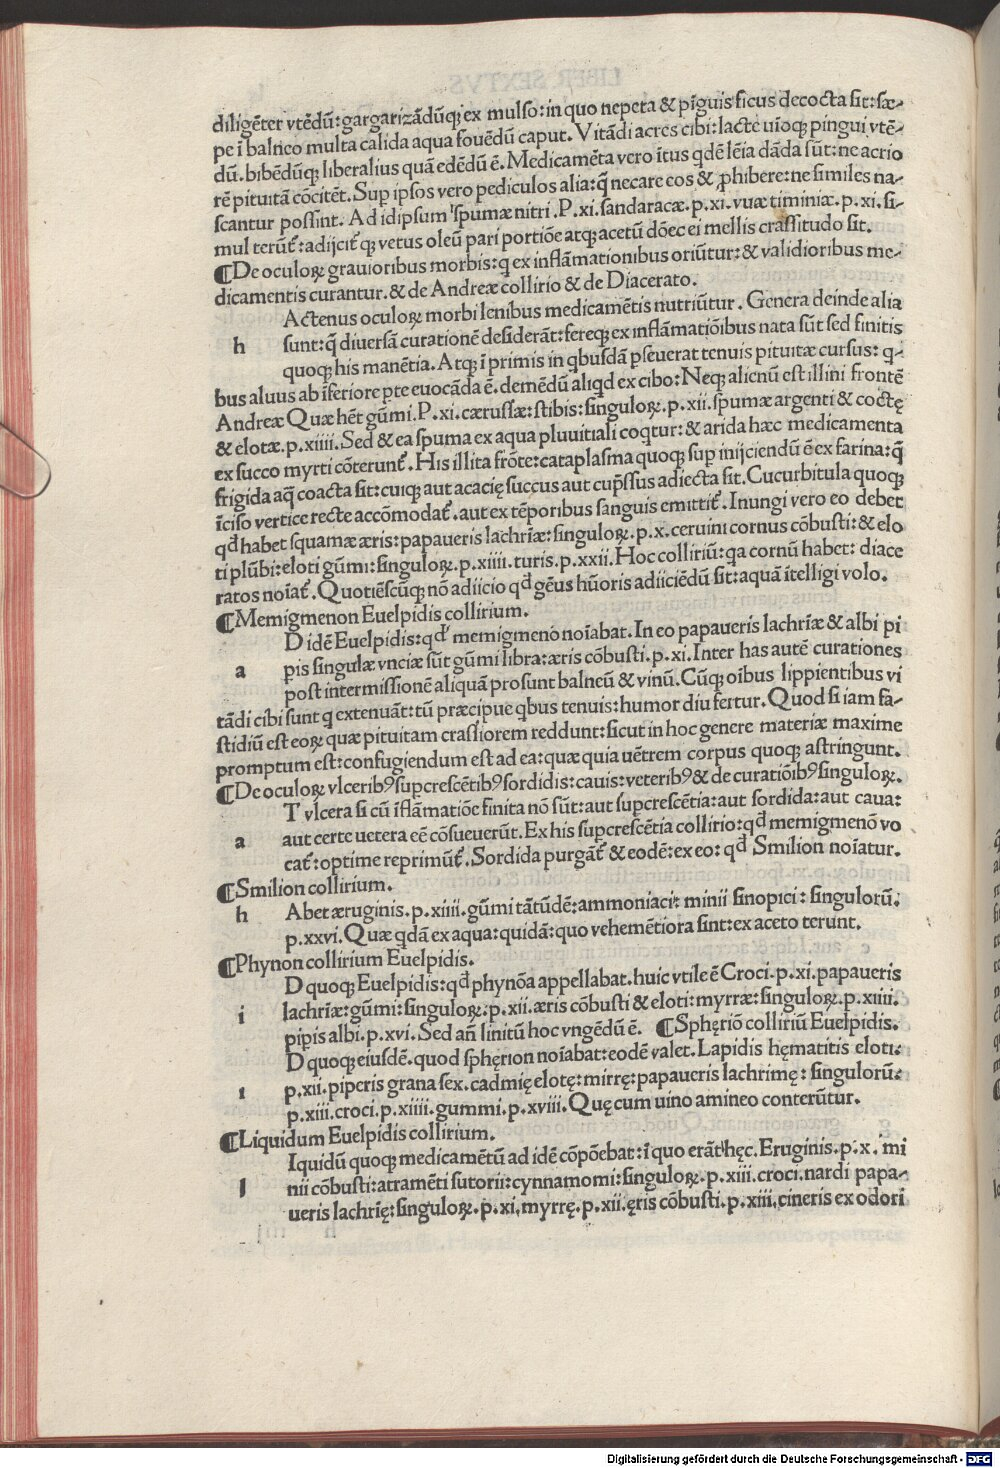 diligēter vtēdū: gargarizādūq; ex mulso: in quo nepeta & pīguis ficus decocta sit: sæ-
pe ī balneo multa calida aqua fouēdū caput. Vitādi acres cibi: lacte uīoq; pingui vtē-
dū. bibēdūq; liberalius quā edēdū ē. Medicamēta vero ītus qdē lēia dāda sūt: ne acrio
rē pituitā cōcitēt. Sup ipsos vero pediculos alia: q̄ necare eos & ꝓhibere: ne similes na-
scantur possint. Ad idipsum spumæ nitri. P. xi. sandaracæ. p. xi. vuæ timiniæ. p. xi. si-
mul terūt̄: adijcit̄ q; vetus oleū pari portiōe atq; acetū dōec ei mellis crassitudo sit.
¶De oculoꝝ grauioribus morbis: q ex inflāmationibus oriūtur: & validioribus me-
dicamentis curantur. & de Andreæ collirio & de Diacerato.
Actenus oculoꝝ morbi lenibus medicamētis nutriūtur. Genera deinde alia
h sunt: q̄ diuersā curationē desiderāt: fereq; ex inflāmatiōibus nata sūt sed finitis
quoq; his manētia. Atq; ī primis in qbusdā pseuerat tenuis pituitæ cursus: q-
bus aluus ab īferiore pte euocāda ē. demēdū aliqd ex cibo: Neq; alienū est illini frontē
Andreæ Quæ hēt gūmi. P. xi. cærussæ: stibis: singuloꝝ. p. xii. spumæ argenti & coctę
& elotæ. p. xiiii. Sed & ea spuma ex aqua pluuitiali coqtur: & arida hæc medicamenta
ex succo myrti cōterunt̄. His illita frōte: cataplasma quoq; sup inijciendū ē ex farina: q̄
frigida aq̄ coacta sit: cuiq; aut acacię succus aut cup̄ssus adiecta sit. Cucurbitula quoq;
īciso vertice recte accōmodat̄. aut ex tēporibus sanguis emittit̄. Inungi vero eo debet
qd habet squamæ æris: papaueris lachrīæ: singuloꝝ. p. x. ceruini cornus cōbusti: & elo
ti plūbi: eloti gūmi: singuloꝝ. p. xiiii. turis. p. xxii. Hoc collirīū: qa cornū habet: diace
ratos noīat̄. Quotiēscūq; nō adiicio qd gēus hūoris adiiciēdū sit: aquā ītelligi volo.
¶Memigmenon Euelpidis collirium.
D idē Euelpidis: qd memigmeno noīabat. In eo papaueris lachrīæ & albi pi
a pis singulæ vnciæ sūt gūmi libra: æris cōbusti. p. xi. Inter has autē curationes
post intermissionē aliquā prosunt balneū & vinū. Cūq; oībus lippientibus vi
tādi cibi sunt q extenuāt: tū præcipue qbus tenuis: humor diu fertur. Quod si iam fa-
stidiū est eoꝝ quæ pituitam crassiorem reddunt: sicut in hoc genere materiæ maxime
promptum est: confugiendum est ad ea: quæ quia uētrem corpus quoq; astringunt.
¶De oculoꝝ vlceribꝰ supcrescētibꝰ sordidis: cauis: veteribꝰ & de curatiōibꝰ singuloꝝ.
T vlcera si cū īflāmatiōe finita nō sūt: aut supcrescētia: aut sordida: aut caua:
a aut certe uetera eē cōsueuerūt. Ex his supcrescētia collirio: qd memigmenō vo
cat̄: optime reprimūt̄. Sordida purgāt̄ & eodē: ex eo: qd Smilion noīatur.
¶Smilion collirium.
h Abet æruginis. p. xiiii. gūmi tātūdē: ammoniaci: minii sinopici: singulorū.
p. xxvi. Quæ qdā ex aqua: quidā: quo vehemētiora sint: ex aceto terunt.
¶Phynon collirium Euelpidis.
D quoq; Euelpidis: qd phynōa appellabat. huic vtile ē Croci. p. xi. papaueris
i lachrīæ: gūmi: singuloꝝ. p. xii. æris cōbusti & eloti: myrræ: singuloꝝ. p. xiiii.
pipis albi. p. xvi. Sed an̄ linitū hoc vngēdū ē. ¶Sphęriō collirīū Euelpidis.
D quoq; eiusdē. quod sphęrion noīabat: eodē valet. Lapidis hęmatitis eloti:
i p. xii. piperis grana sex. cadmię elotę: mirrę: papaueris lachrimę: singulorū:
p. xiii. croci. p. xiiii. gummi. p. xviii. Quę cum uino amineo conterūtur.
¶Liquidum Euelpidis collirium.
Iquidū quoq; medicamētū ad idē cōpōebat: ī quo erāt hęc. Eruginis. p. x. mi
l nii cōbusti: atramēti sutorii: cynnamomi: singuloꝝ. p. xiii. croci. nardi papa-
ueris lachrię: singuloꝝ. p. xi. myrrę. p. xii. ęris cōbusti. p. xiii. cineris ex odori
Digitalisierung gefördert durch die Deutsche Forschungsgemeinschaft - DFG